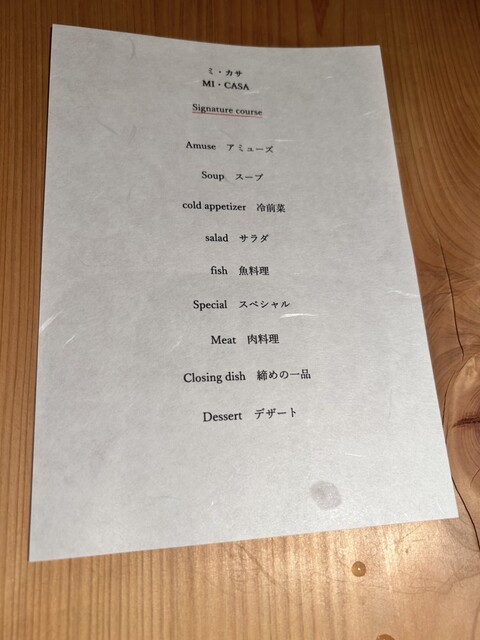 ミ・カサ
MI・CASA
Signature course
Amuse アミューズ
Soup スープ
cold appetizer 冷前菜
salad サラダ
fish 魚料理
Special スペシャル
Meat 肉料理
Closing dish 締めの一品
Dessert デザート